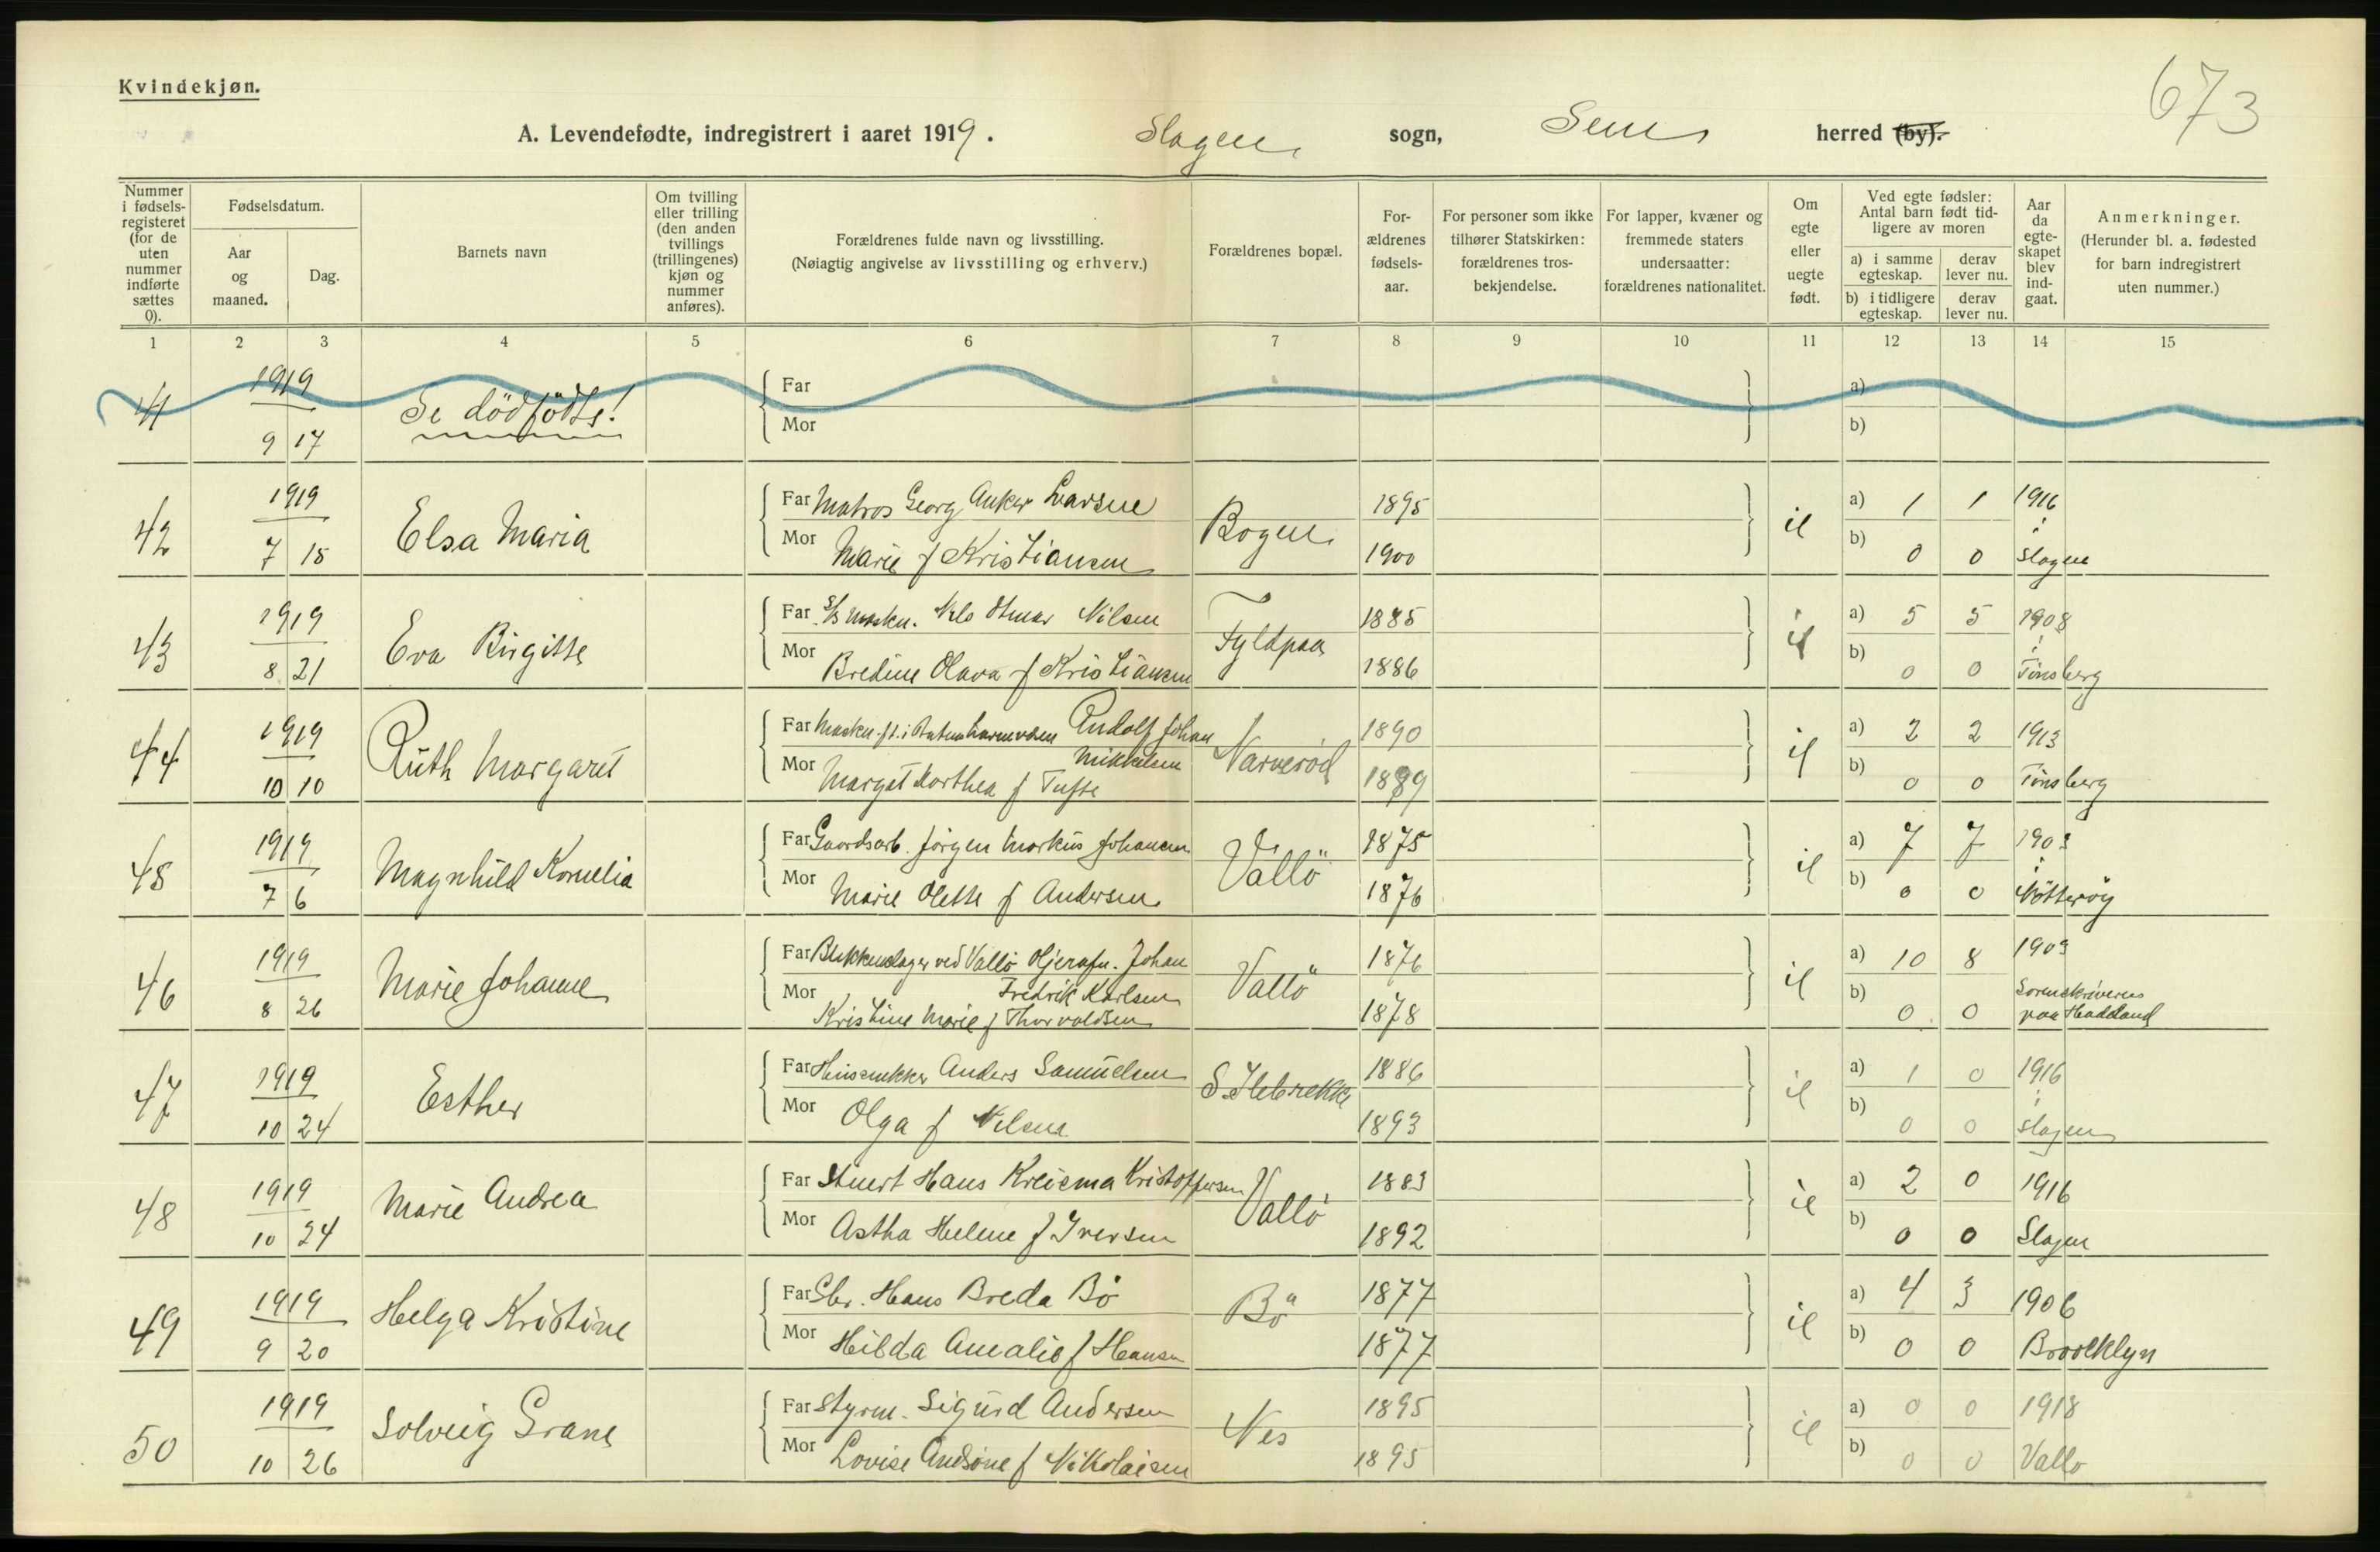 Kvindekjøn.
673
A. Levendefødte, indregistrert i aaret 1919. Slagen sogn, Sem herred (by).
Nummer i fødselsregisteret (for de uten nummer indførte sættes 0).
Fødselsdatum.
Aar og maaned.
Dag.
Barnets navn
Om tvilling eller trilling (den anden tvillings (trillingenes) kjøn og nummer anføres).
Forældrenes fulde navn og livsstilling.
(Nøiagtig angivelse av livsstilling og erhverv.)
Forældrenes bopæl.
Forældrenes fødselsaar.
For personer som ikke tilhører Statskirken: forældrenes trosbekjendelse.
For lapper, kvæner og fremmede staters undersaatter: forældrenes nationalitet.
Om egte eller uegte født.
Ved egte fødsler: Antal barn født tidligere av moren
a) i samme egteskap. derav lever nu.
b) i tidligere egteskap. derav lever nu.
Aar da egteskapet blev indgaat.
Anmerkninger.
(Herunder bl. a. fødested for barn indregistrert uten nummer.)
1 2 3 4 5 6 7 8 9 10 11 12 13 14 15
41 1919 9 17 Se dödfödte! Far a)
Mor b)
42 1919 7 15 Elsa Maria Far Matros Georg Anker Larsen Bogen 1895 il a) 1 1 1916 i
Mor Marie f Kristiansen 1900 b) 0 0 Slagen
43 1919 8 21 Eva Birgitte Far Nils Otmar Nilsen 1885 il a) 5 5 1908 i
Mor Bredine Olava f Kristiansen 1886 b) 0 0 Tönsberg
44 1919 10 10 Ruth Margaret Far Rudolf Johan Mikkelsen Narveröd 1890 il a) 2 2 1913
Mor Margat Dorthea f Tufte 1889 b) 0 0 Tönsberg
45 1919 7 6 Magnhild Kornelia Far Gaardsarb. Jörgen Markus Johansen Vallö 1875 il a) 7 7 1903 i
Mor Marie Olette f Andersen 1876 b) 0 0 Nötteröy
46 1919 8 26 Marie Johanne Far Blikkenslager ved Vallö Oljerafn. Johan Fredrik Karlsen Vallö 1876 il a) 10 8 1903
Mor Kristine Marie f Thorvaldsen 1878 b) 0 0 Sorenskriveren paa Hadeland
47 1919 10 24 Esther Far Anders Samuelsen S. Ilebrekke 1886 il a) 1 0 1916 i
Mor Olga f Nilsen 1893 b) 0 0 Slagen
48 1919 10 24 Marie Andrea Far Stuert Hans Kristoffersen Vallö 1883 il a) 2 0 1916
Mor Astha Helene f Iversen 1892 b) 0 0 Slagen
49 1919 9 20 Helga Kristine Far Gbr. Hans Breda Bö Bö 1877 il a) 4 3 1906
Mor Hilda Amalie f Hansen 1877 b) 0 0 Broocklyn
50 1919 10 26 Solveig Grane Far Styrm. Sigurd Andersen Nes 1895 il a) 0 0 1918
Mor Lovise f Nikolaisen 1895 b) 0 0 Vallo